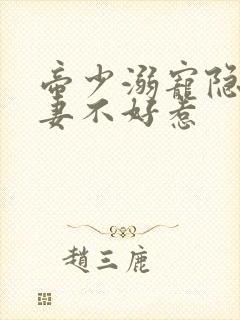 帝少溺寵隐
妻不好惹
趙三鹿